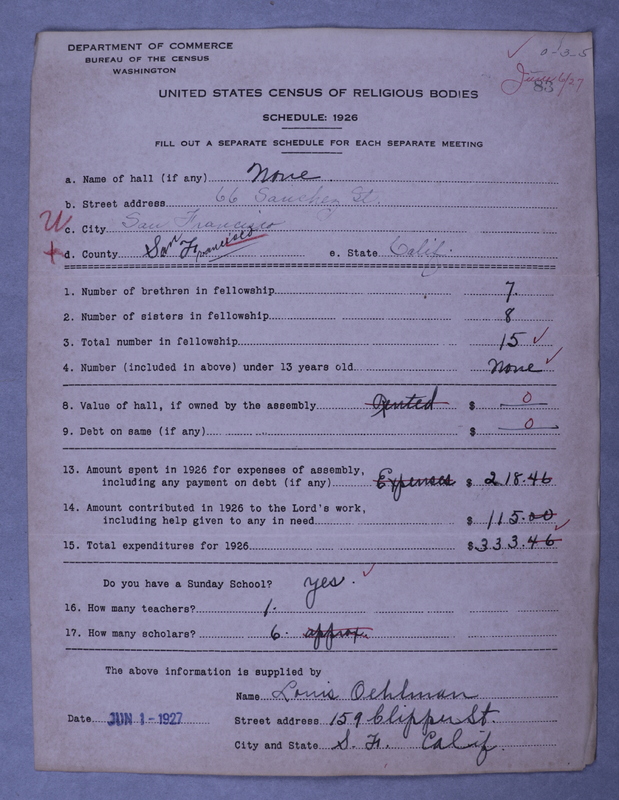 DEPARTMENT OF COMMERCE
BUREAU OF THE CENSUS
WASHINGTON
✓ 0-3-5
June 6/27
83
UNITED STATES CENSUS OF RELIGIOUS BODIES
SCHEDULE: 1926
FILL OUT A SEPARATE SCHEDULE FOR EACH SEPARATE MEETING
a. Name of hall (if any) None
b. Street address 66 Sanchez St.
c. City San Francisco
d. County San Francisco e. State Calif.
1. Number of brethren in fellowship 7.
2. Number of sisters in fellowship 8
3. Total number in fellowship 15 ✓
4. Number (included in above) under 13 years old None ✓
8. Value of hall, if owned by the assembly Rented $ 0
9. Debt on same (if any) $ 0
13. Amount spent in 1926 for expenses of assembly,
including any payment on debt (if any) Expenses $ 218.46
14. Amount contributed in 1926 to the Lord's work,
including help given to any in need $ 115.00
15. Total expenditures for 1926 $ 333.46 ✓
Do you have a Sunday School? yes. ✓
16. How many teachers? 1.
17. How many scholars? 6. approx.
The above information is supplied by
Name Louis Oehlman
Date JUN 1-1927 Street address 159 Clipper St.
City and State S. F. Calif.